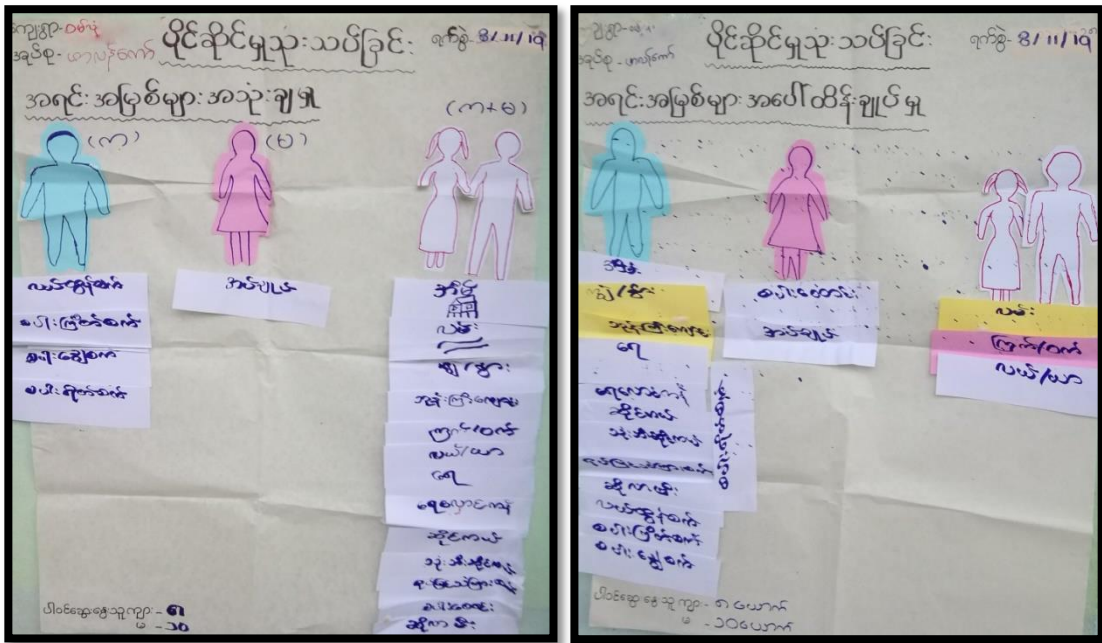 ကျေးရွာ-
အုပ်စု- ဟာလန်ကော်
ပိုင်ဆိုင်မှုသုံးသပ်ခြင်း
ရက်စွဲ- 8/11/19
အရင်းအမြစ်များအသုံးချမှု
(က)
(မ)
(က+မ)
လယ်ထွန်စက်
စပါးကြိတ်စက်
စပါးချွေစက်
စပါးရိတ်စက်
အပ်ချုပ်
အိမ်
လမ်း
ကျွဲ/နွား
ဘုန်းကြီးကျောင်း
ကြက်/ဝက်
လယ်/ယာ
ရေ
ရေလှောင်ကန်
ဆိုင်ကယ်
သုံးဘီးဆိုင်ကယ်
ဆိုလာမီး
ပါဝင်ဆွေးနွေးသူ ကျား- ၈
မ - ၁၀
အုပ်စု- ဟာလန်ကော်
ပိုင်ဆိုင်မှုသုံးသပ်ခြင်း
ရက်စွဲ- 8/11/19
အရင်းအမြစ်များအပေါ်ထိန်းချုပ်မှု
အိမ်
ကျွဲ/နွား
ဘုန်းကြီးကျောင်း
ရေ
ရေလှောင်ကန်
ဆိုင်ကယ်
သုံးဘီးဆိုင်ကယ်
ဆိုလာမီး
လယ်ထွန်စက်
စပါးကြိတ်စက်
စပါးချွေစက်
စပါးရိတ်စက်
အပ်ချုပ်
လမ်း
ကြက်/ဝက်
လယ်/ယာ
ပါဝင်ဆွေးနွေးသူ ကျား- ၈ ယောက်
မ - ၁၀ယောက်